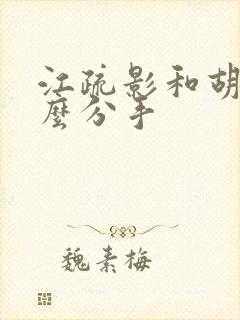 江疏影和胡
麼分手
魏素梅